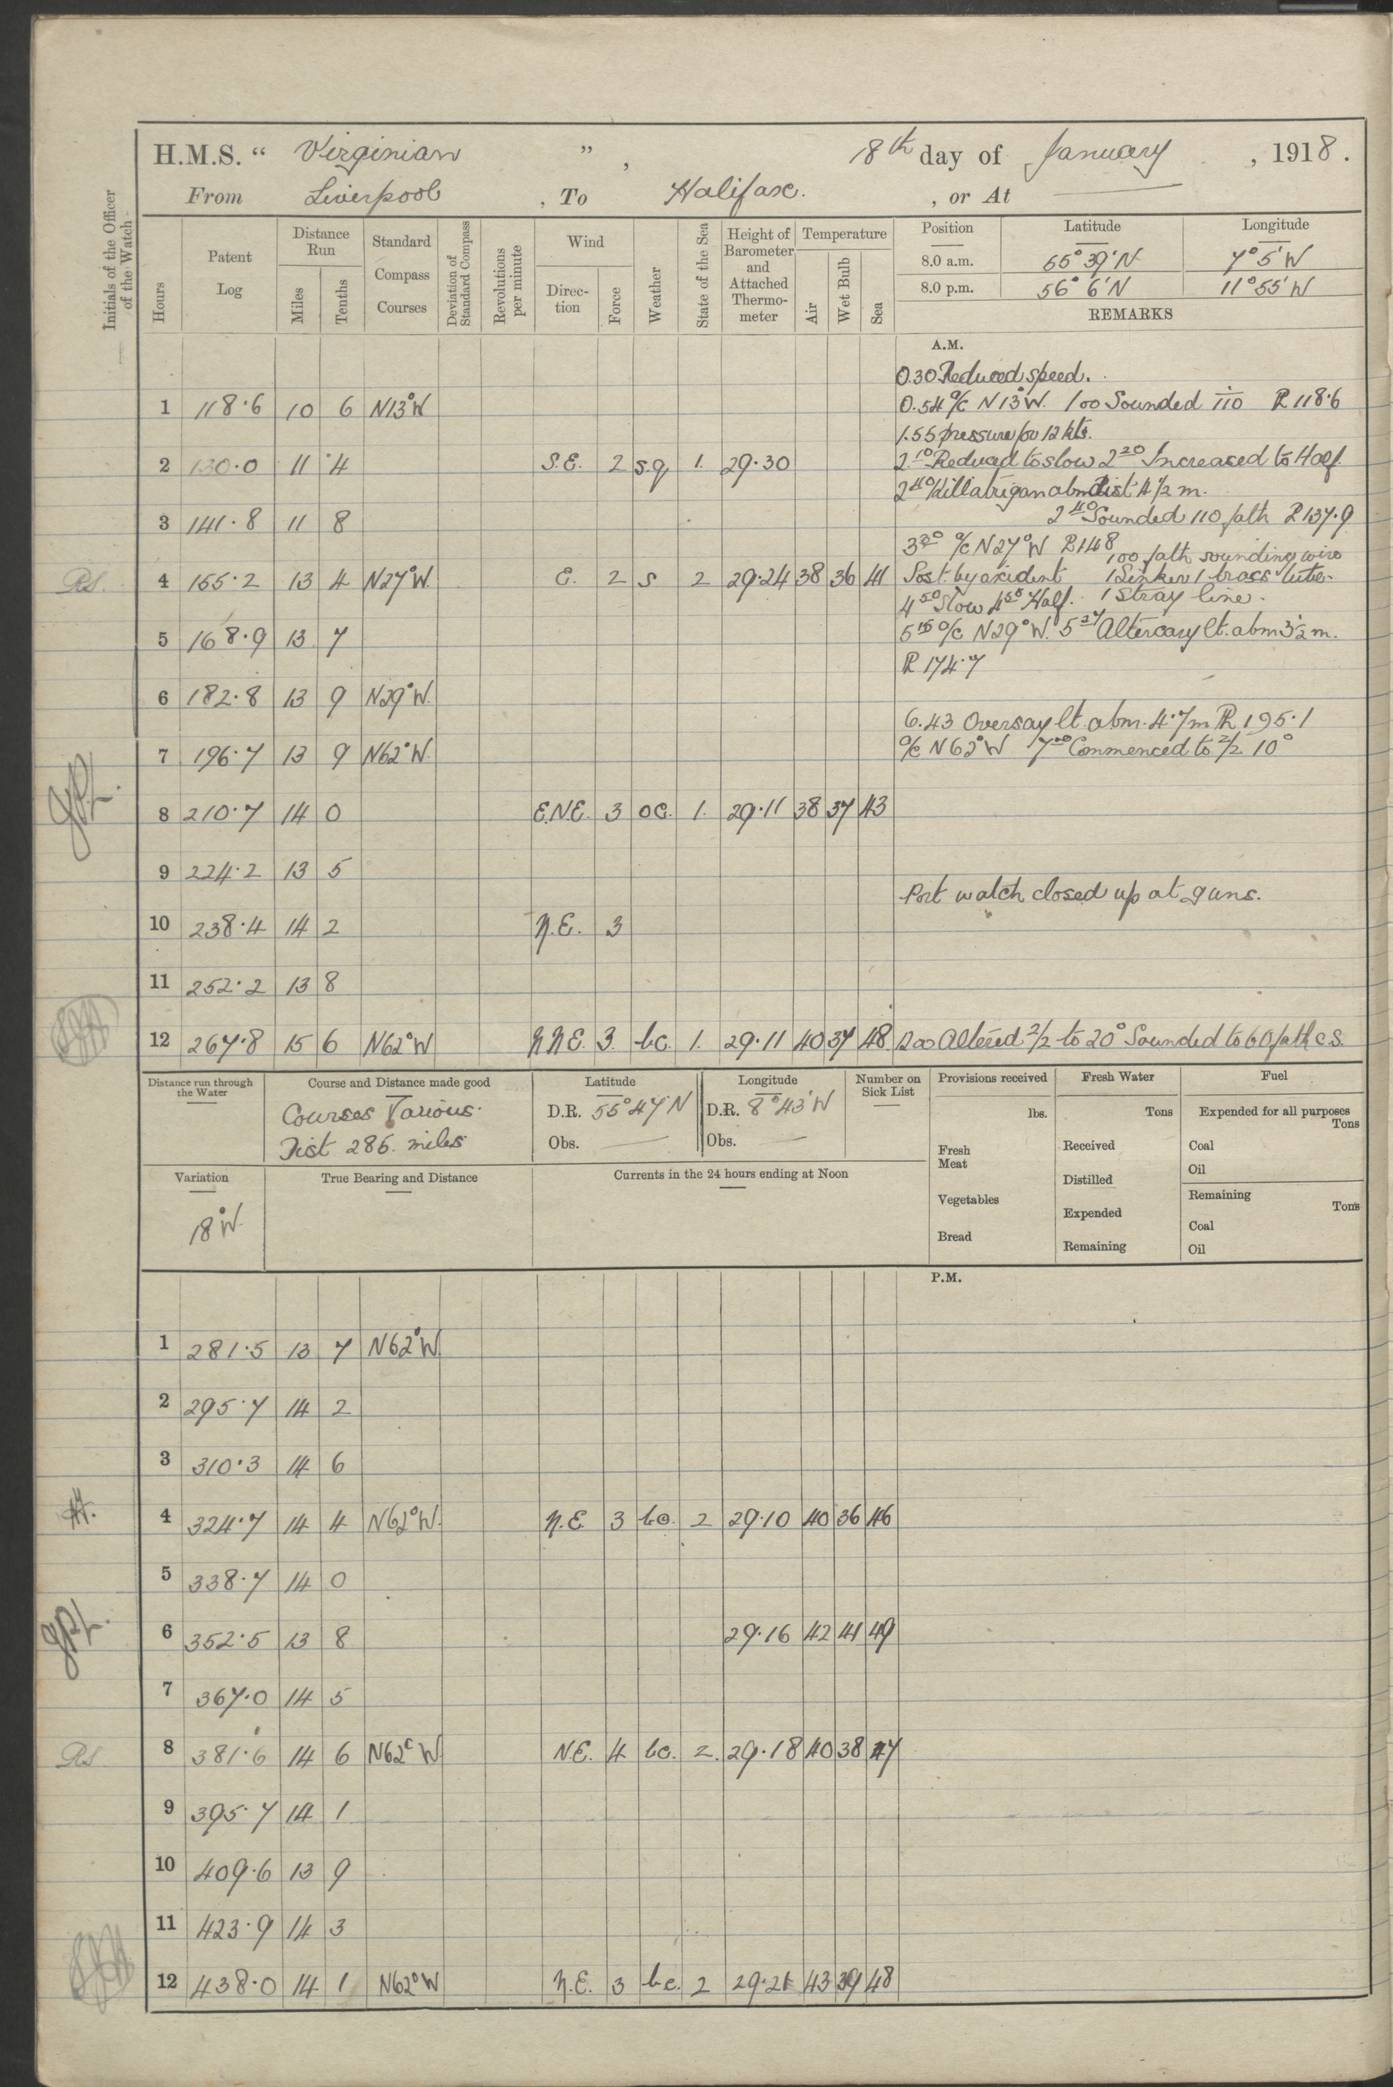 H.M.S. “ Virginian ” , 18th day of January , 1918.
From Liverpool , To Halifax. , or At
Initials of the Officer of the Watch
Hours
Patent Log
Distance Run
Miles
Tenths
Standard Compass Courses
Deviation of Standard Compass
Revolutions per minute
Wind
Direction
Force
Weather
State of the Sea
Height of Barometer and Attached Thermometer
Temperature
Air
Wet Bulb
Sea
Position Latitude Longitude
8.0 a.m. 55° 39' N 7° 5' W
8.0 p.m. 56° 6' N 11° 55' W
REMARKS
A.M.
0.30 Reduced speed.
1 118.6 10 6 N13°W 0.54 o/c N13°W. 1 00 Sounded 110 PL 118.6
1.55 pressure for 12 kts.
2 130.0 11 4 S.E. 2 s.q 1. 29.30 2 10 Reduced to slow 2 20 Increased to Half.
2 40 Killatrigan abm dist 4 1/2 m.
3 141.8 11 8 2 40 Sounded 110 fath PL 137.9
3 30 o/c N27°W PL 148
100 fath sounding wire
Rs. 4 155.2 13 4 N27°W. E. 2 s 2 29.24 38 36 41 Lost by accident 1 Sinker 1 brass tube.
4 50 Slow 4 58 Half. 1 stray line.
5 168.9 13 7 5 15 o/c N29°W. 5 27 Altercary lt. abm 3 1/2 m.
PL 174.7
6 182.8 13 9 N29°W.
6.43 Oversay lt. abm. 4.7m PL 195.1
7 196.7 13 9 N62°W. o/c N62°W 7 00 Commenced to Z/Z 10°
8 210.7 14 0 E.N.E. 3 oc. 1. 29.11 38 37 43
9 224.2 13 5
Port watch closed up at guns.
10 238.4 14 2 N.E. 3
11 252.2 13 8
12 267.8 15 6 N62°W NNE. 3. bc. 1. 29.11 40 37 48 12 00 Altered Z/Z to 20° Sounded to 60 faths.
Distance run through the Water
Course and Distance made good
Courses Various.
Dist 286. miles
Latitude
D.R. 55° 47' N
Obs.
Longitude
D.R. 8° 43' W
Obs.
Number on Sick List
Provisions received
lbs.
Fresh Meat
Vegetables
Bread
Fresh Water
Tons
Received
Distilled
Expended
Remaining
Fuel
Expended for all purposes
Tons
Coal
Oil
Remaining
Tons
Coal
Oil
Variation
18°W.
True Bearing and Distance
Currents in the 24 hours ending at Noon
P.M.
1 281.5 13 7 N62°W
2 295.7 14 2
3 310.3 14 6
4 324.7 14 4 N62°W. N.E. 3 bc. 2 29.10 40 36 46
5 338.7 14 0
6 352.5 13 8 29.16 42 41 49
7 367.0 14 5
Rs 8 381.6 14 6 N62°W N.E. 4 bc. 2. 29.18 40 38 47
9 395.7 14 1
10 409.6 13 9
11 423.9 14 3
12 438.0 14 1 N62°W N.E. 3 bc. 2 29.21 43 39 48